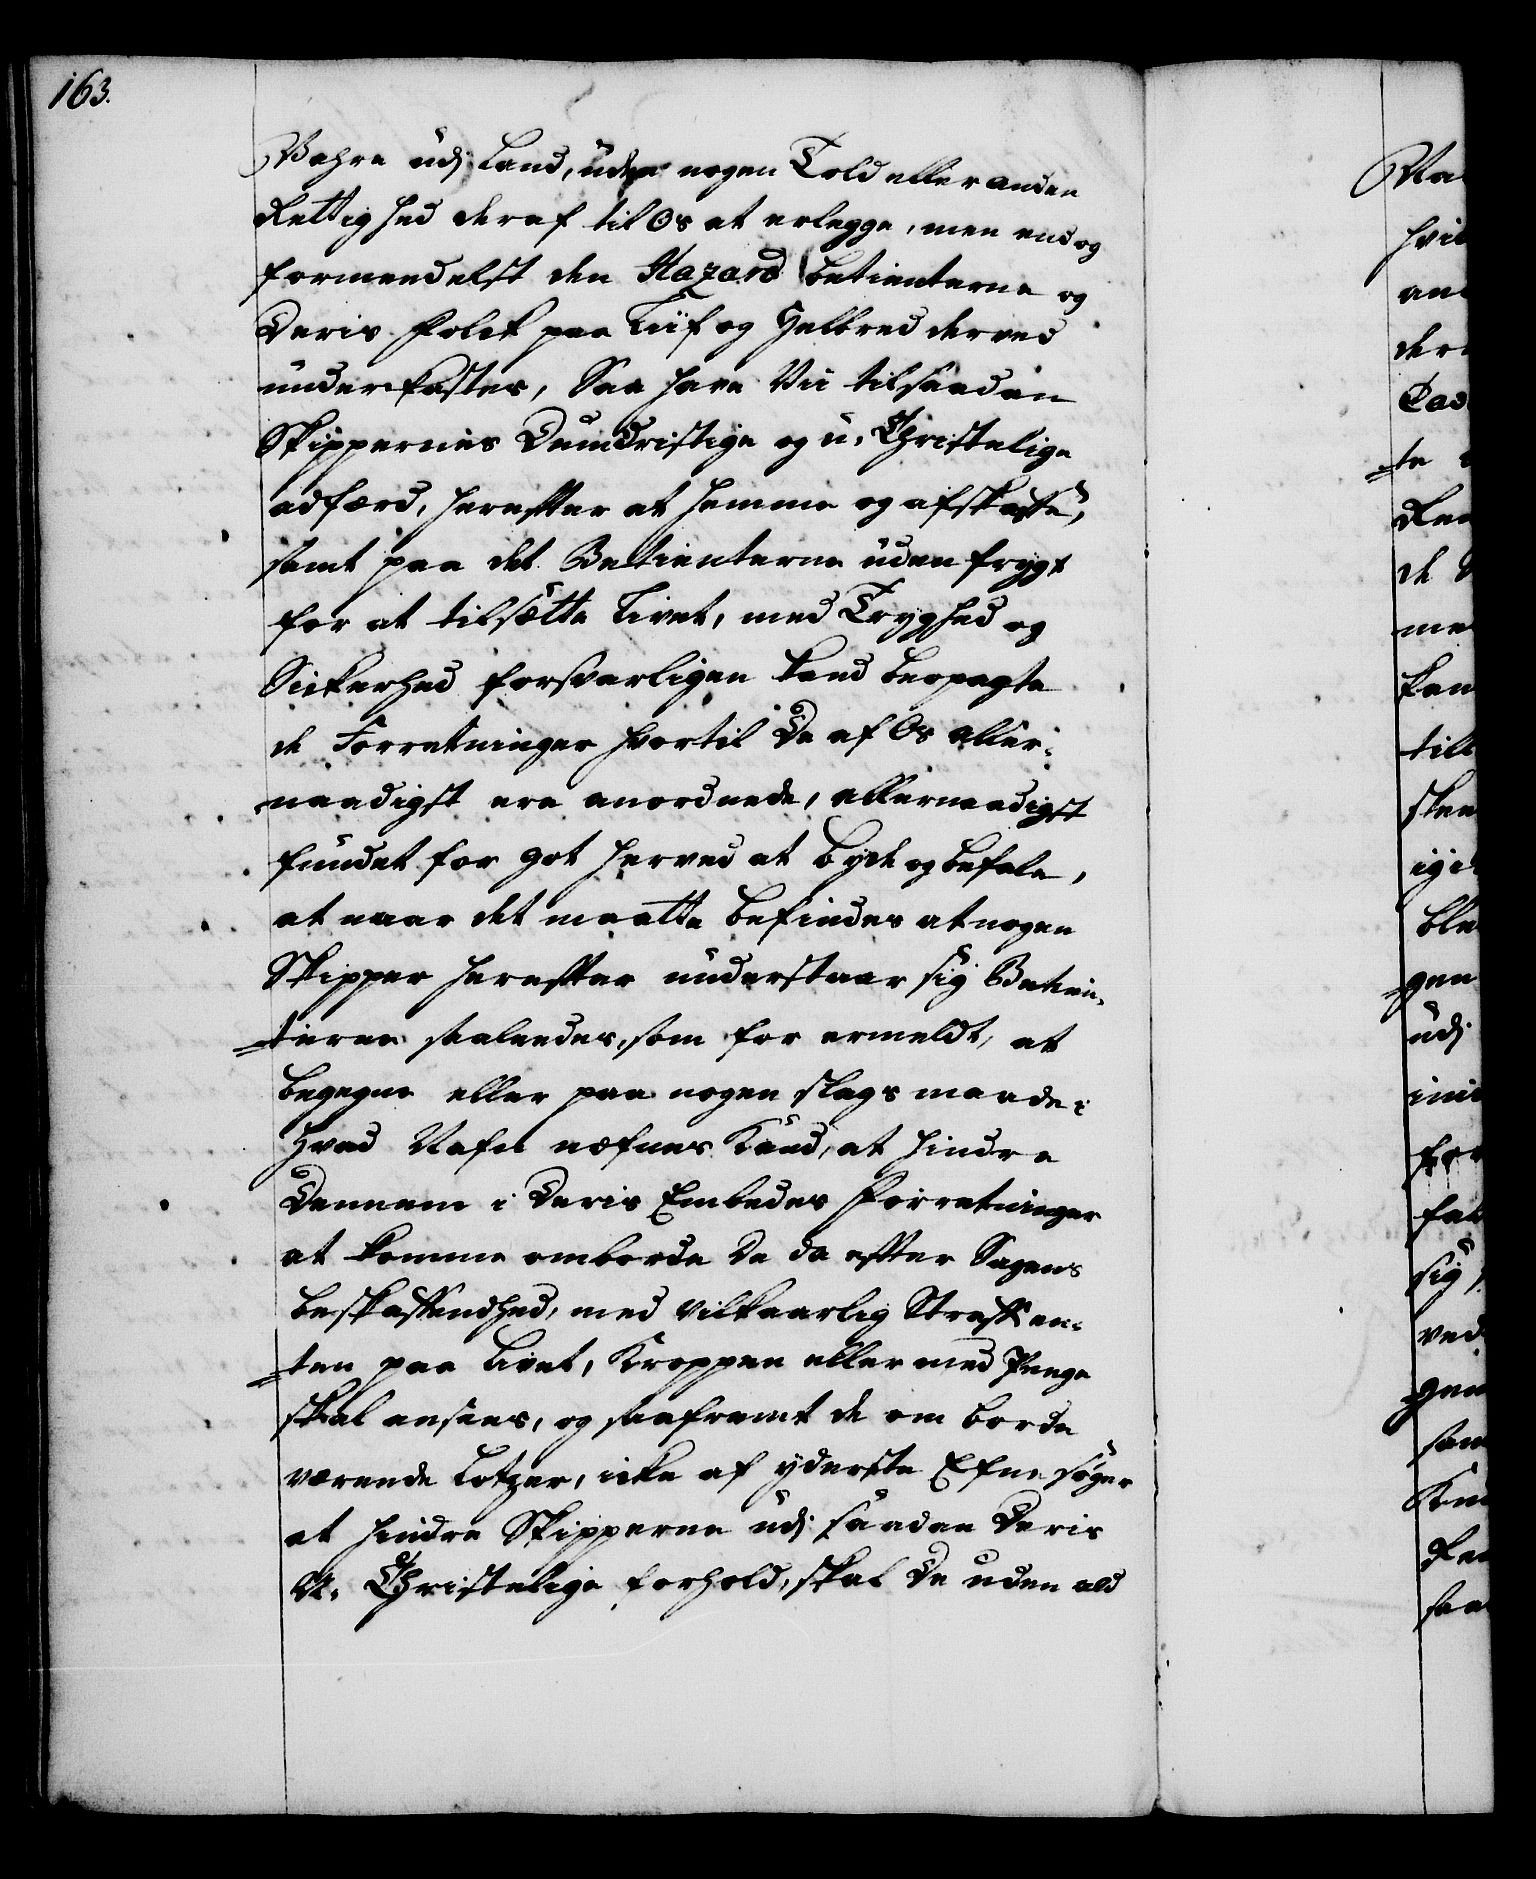 163.
Wahre udj Land, uden nogen Told eller anden
Rettighed deraf til Os at erlegge, men endog
formendelst den Hazard betienterne og
Deris Folck paa Liif og Helbred derved
underkastes, Saa have Vii til saadan
Skippernes Dumdristige og u-Christelige
adfærd, herefter at hemme og afskaffe,
samt paa det Betienterne uden frygt
for at tilsætte Livet, med Tryghed og
Sickerhed forsvarligen kand beopagte
de Forretninger hvortil De af Os aller-
naadigst ere anordnede, allernaadigst
fundet for got herved at byde og befale,
at naar det maatte befindes at nogen
Skipper herefter understaar sig Betien-
terne saaledes, som for ermeldt, at
begegne eller paa nogen slags maade,
hvad Nafn næfnes kand, at hindre
Dennem i Deris Embedes Forretninger
at komme omborde De da efter Sagens
beskaffendhed, med vilkaarlig Straff en-
ten paa Livet, Kroppen eller med Penge
skal ansees, og saafremt de om borde
værende Lotzer, icke af yderste Efne søger
at hindre Skipperne udj saadan Deris
U-Christelige forhold, skal De uden ald
Wa
hvil
an
der
Tad
te
Re
de
me
kan
till
skee
igi
ble
gen
udj
ini
for
fal
sig
ved
gen
sam
Kon
Re
saa